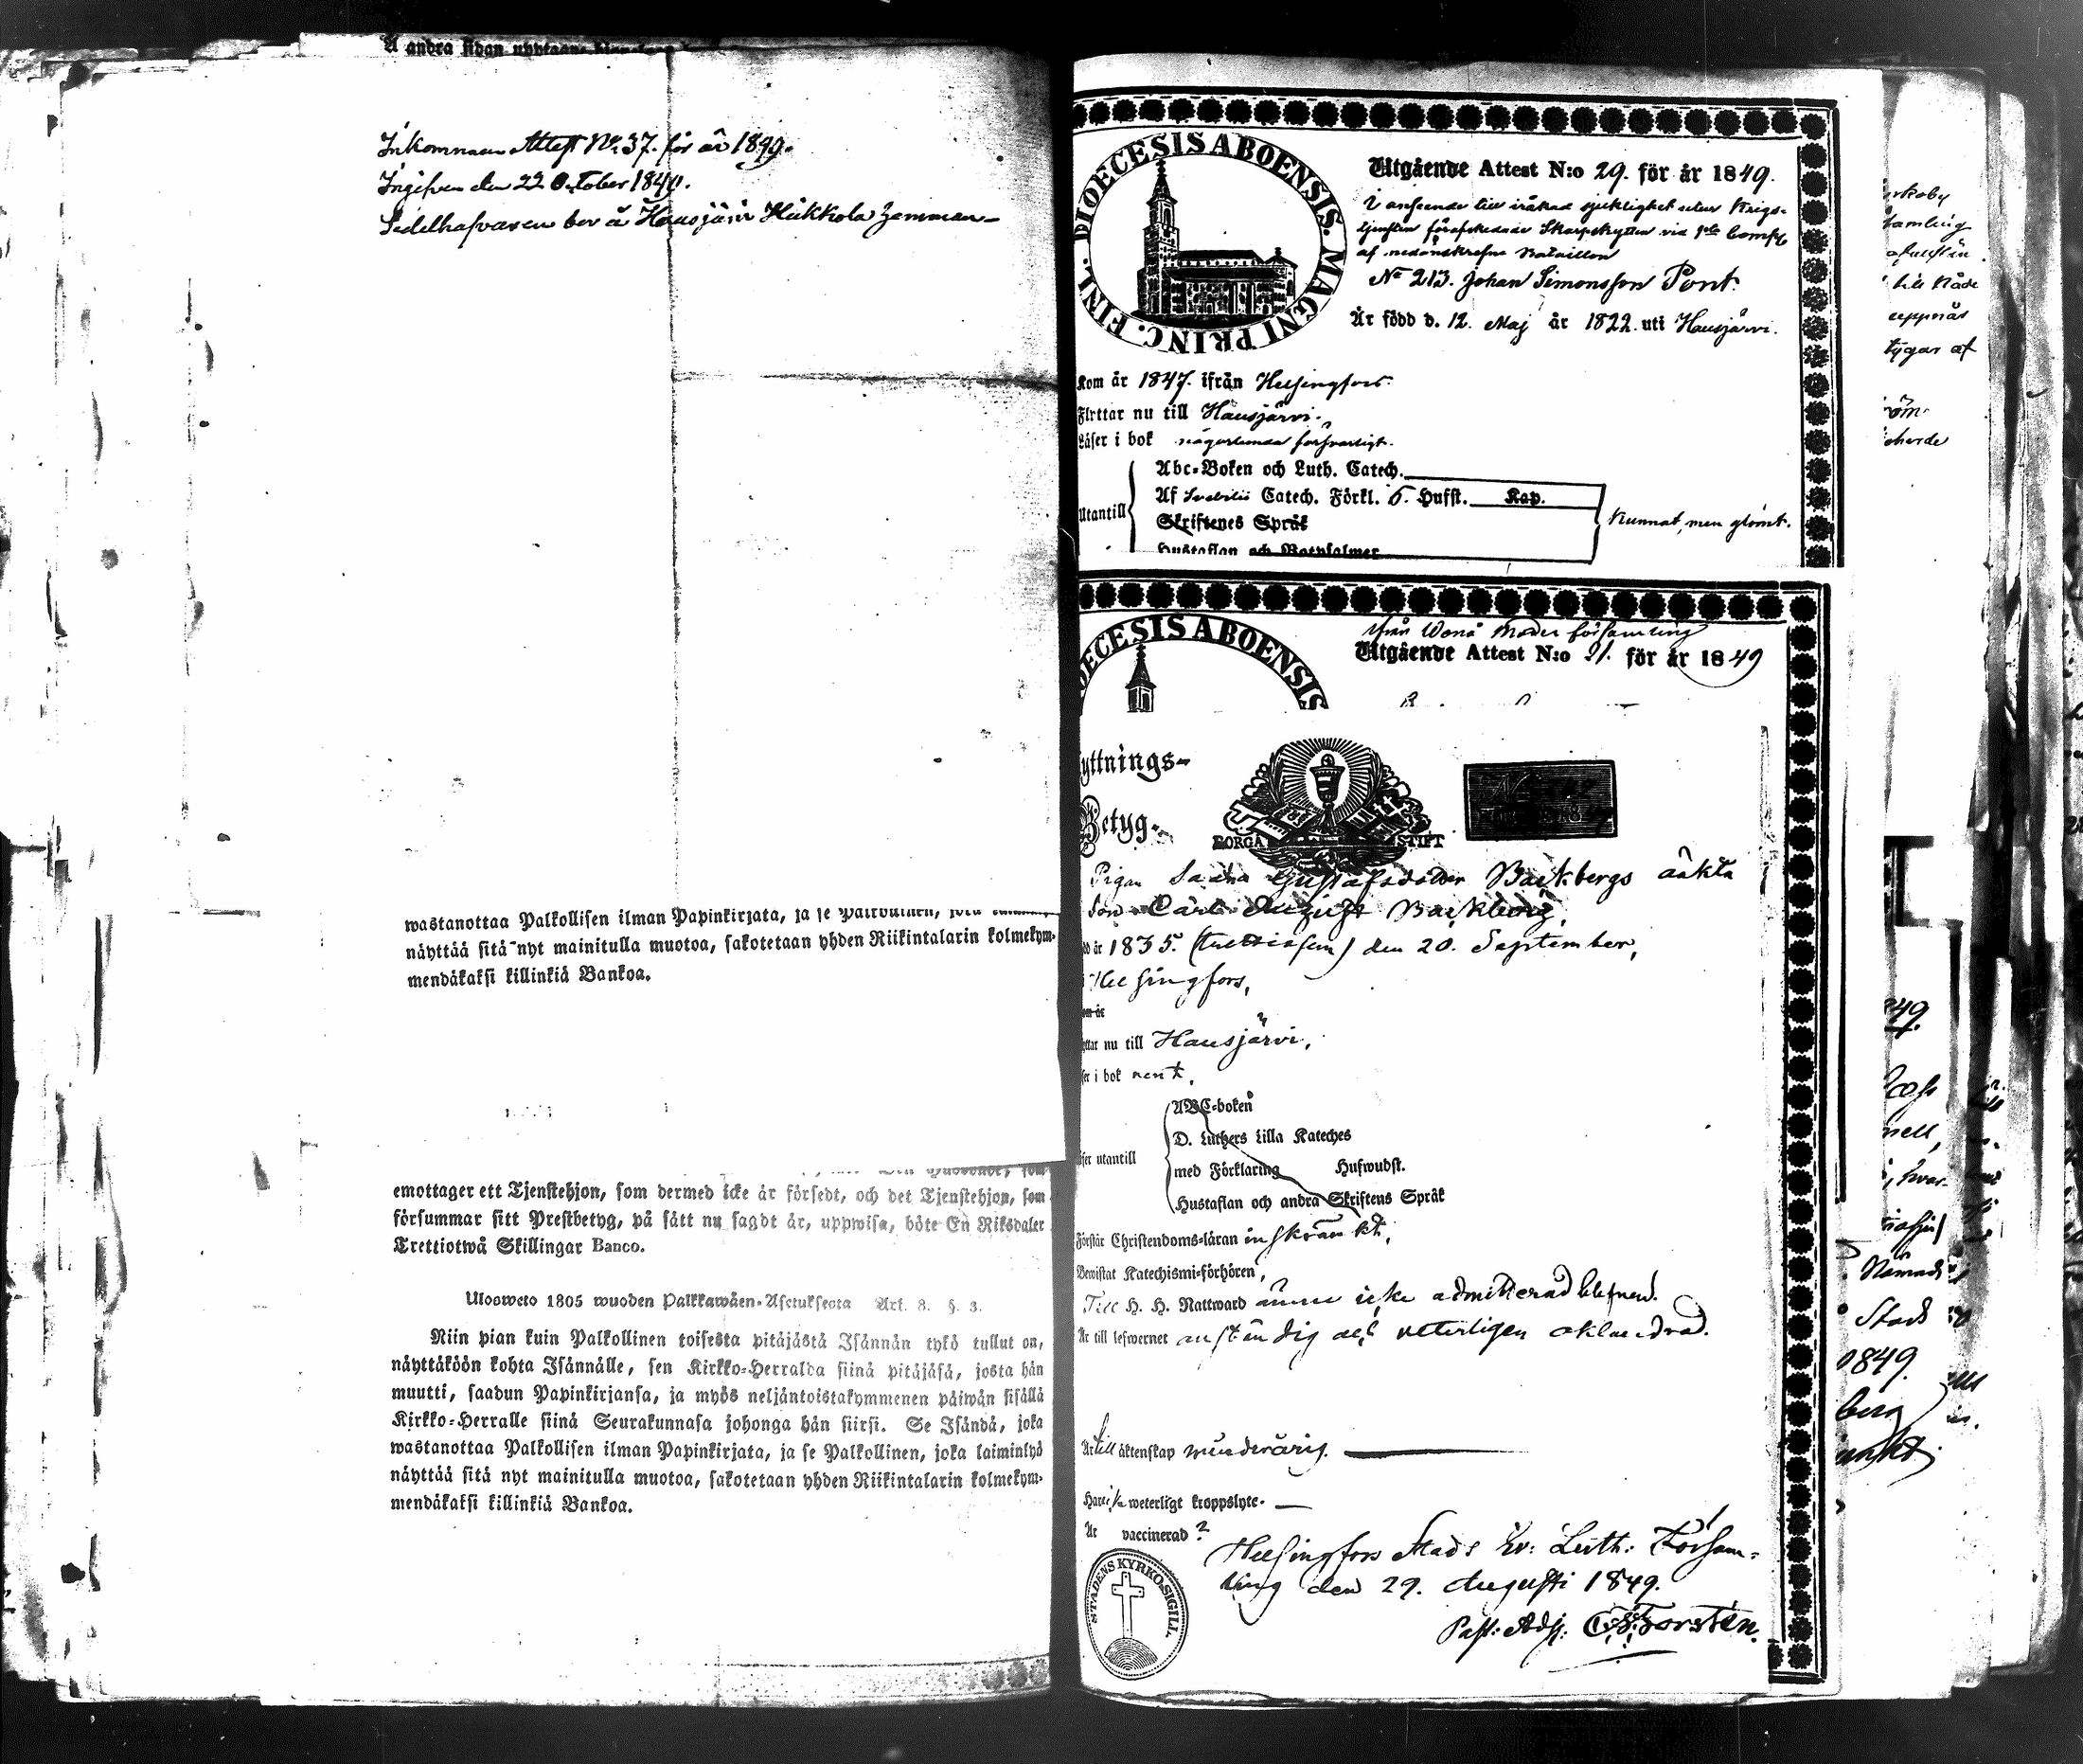 Å andra sidan
Inkommen Attest No 37. för år 1849.
Ingifven den 22 October 1849.
Sedelhafvaren bor å Hausjärvi Hikkola hemman
wastanottaa Palkollisen ilman Papinkirjata, ja se Palkollinen, joka
näyttää sitä nyt mainitulla muotoa, sakotetaan yhden Riikintalarin kolmekym-
mendäkaksi killinkiä Bankoa.
emottager ett Tjenstehjon, som dermed icke är försedt, och det Tjenstehjon, som
försummar sitt Prestbetyg, på sätt nu sagdt är, uppwisa, böte En Riksdaler
Trettiotwå Skillingar Banco.
Ulosweto 1805 wuoden Palkkawäen-Asetuksesta Art. 8. §. 3.
Niin pian kuin Palkollinen toisesta pitäjästä Isännän tykö tullut on,
näyttäköön kohta Isännälle, sen Kirkko-Herralda siinä pitäjäsä, josta hän
muutti, saadun Papinkirjansa, ja myös neljäntoistakymmenen päiwän sisällä
Kirkko-Herralle siinä Seurakunnasa johonga hän siirsi. Se Isändä, joka
wastanottaa Palkollisen ilman Papinkirjata, ja se Palkollinen, joka laiminlyö
näyttää sitä nyt mainitulla muotoa, sakotetaan yhden Riikintalarin kolmekym-
mendäkaksi killinkiä Bankoa.
DIOECESIS ABOENSIS. MAGNI PRINC. FINL.
Utgående Attest N:o 29. för år 1849.
I anseende till iråkad sjuklighet utur Krigs-
tjensten förafskedade Skarpskytten vid 1sta Comp.
af nedanskrefne Bataillon
No 213. Johan Simonsson Pont.
Är född d. 12. Maj år 1822. uti Hausjärvi.
Kom år 1847. ifrån Helsingfors.
Flyttar nu till Hausjärvi.
Läser i bok någorlunda försvarligt.
Abc-Boken och Luth. Catech.
Af Svebilii Catech. Förkl. 6. Hufst. Kap.
Utantill
Skriftenes Språk
Kunnat, men glömt.
Hustaflan och Botpsalmer
ifrån Wånå Moder församling
Utgående Attest N:o 21. för år 1849
DIOECESIS ABOENSIS
yttnings-
Betyg.
BORGÅ STIFT
Pigan Gustafsdotter Backbergs oäkta
son Carl August Backberg,
år 1835. (trettiofem) den 20. September,
i Helsingfors,
om år
ttar nu till Hausjärvi,
ser i bok rent,
ABC-boken
D. Luthers Lilla Kateches
ser utantill
med Förklaring Hufwudst.
Hustaflan och andra Skriftens Språk
Förstår Christendoms-läran inskränkt,
Bewistat Katechismi-förhören,
Till H. H. Nattward ännu icke admitterad blefven.
Är till lefwernet anständig och veterligen oklandrad.
Är till äktenskap minderårig.
Har weterligt kroppslyte.
Är vaccinerad?
STADENS KYRKO-SIGILL.
Helsingfors Stads Ev: Luth: Försam-
ling den 29. Augusti 1849.
Past: Adj:
till Nåde
tygar af
49.
Stads
1849.
berg